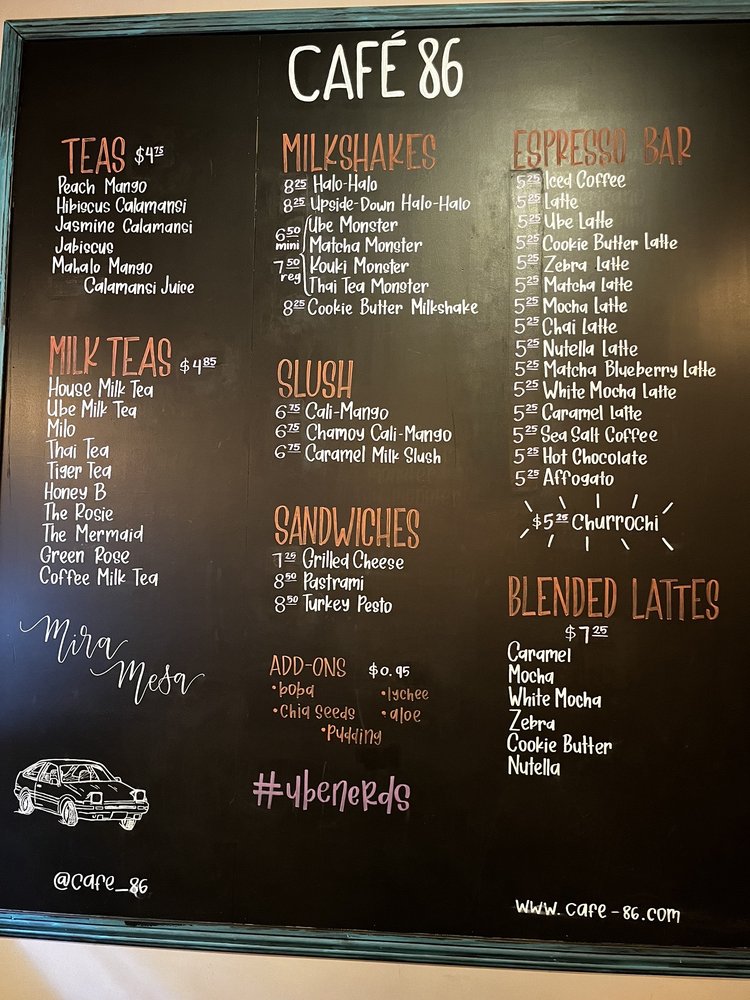 CAFÉ 86
TEAS $4.75
Peach Mango
Hibiscus Calamansi
Jasmine Calamansi
Jabiscus
Mahalo Mango
Calamansi Juice
MILK TEAS $4.85
House Milk Tea
Ube Milk Tea
Milo
Thai Tea
Tiger Tea
Honey B
The Rosie
The Mermaid
Green Rose
Coffee Milk Tea
Mira
Mesa
@cafe_86
MILKSHAKES
8.25 Halo-Halo
8.25 Upside-Down Halo-Halo
6.50 mini
7.50 reg
Ube Monster
Matcha Monster
Kouki Monster
Thai Tea Monster
8.25 Cookie Butter Milkshake
SLUSH
6.75 Cali-Mango
6.75 Chamoy Cali-Mango
6.75 Caramel Milk Slush
SANDWICHES
7.25 Grilled Cheese
8.50 Pastrami
8.50 Turkey Pesto
ADD-ONS $0.95
•boba •lychee
•Chia Seeds •aloe
•Pudding
#ubenerds
ESPRESSO BAR
5.25 Iced Coffee
5.25 Latte
5.25 Ube Latte
5.25 Cookie Butter Latte
5.25 Zebra Latte
5.25 Matcha Latte
5.25 Mocha Latte
5.25 Chai Latte
5.25 Nutella Latte
5.25 Matcha Blueberry Latte
5.25 White Mocha Latte
5.25 Caramel Latte
5.25 Sea Salt Coffee
5.25 Hot Chocolate
5.25 Affogato
$5.25 Churrochi
BLENDED LATTES
$7.25
Caramel
Mocha
White Mocha
Zebra
Cookie Butter
Nutella
www.cafe-86.com